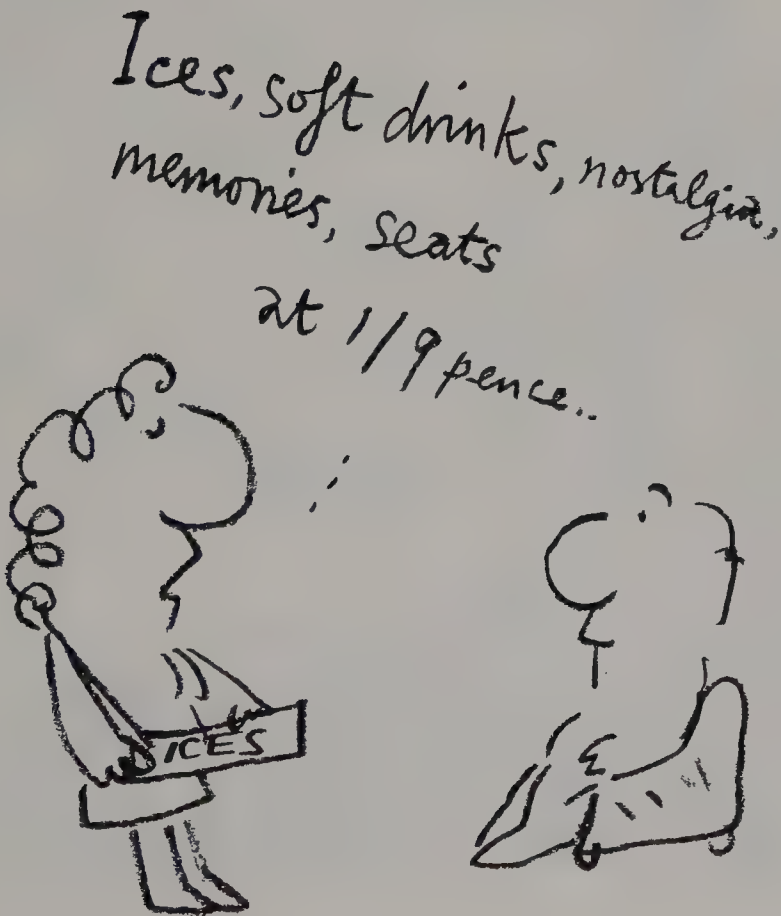 Ices, soft drinks, nostalgia,
memories, seats
at 1/9 pence..
ICES